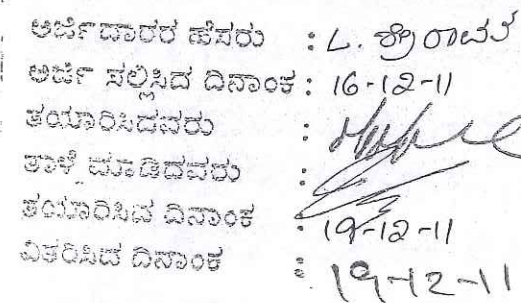 ಅರ್ಜಿದಾರರ ಹೆಸರು : L. ಶ್ರೀರಾಮ
ಅರ್ಜಿ ಸಲ್ಲಿಸಿದ ದಿನಾಂಕ : 16-12-11
ತಯಾರಿಸಿದವರು :
ತಾಳೆ ಮಾಡಿದವರು :
ತಯಾರಿಸಿದ ದಿನಾಂಕ : 19-12-11
ವಿತರಿಸಿದ ದಿನಾಂಕ : 19-12-11